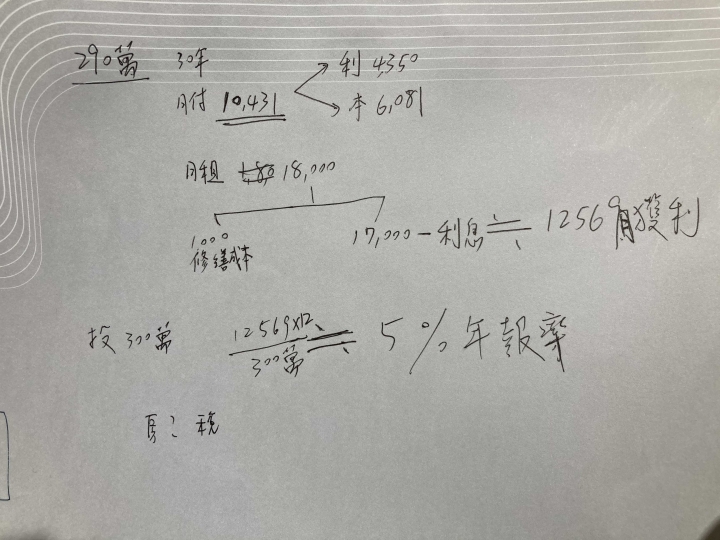 290萬 30年
月付 10,431 利 4350
本 6,081
月租 18,000
1000 修繕成本
17,000 - 利息 ≒ 12569 月獲利
投 300萬 12569×12 / 300萬 ≒ 5% 年報率
稅